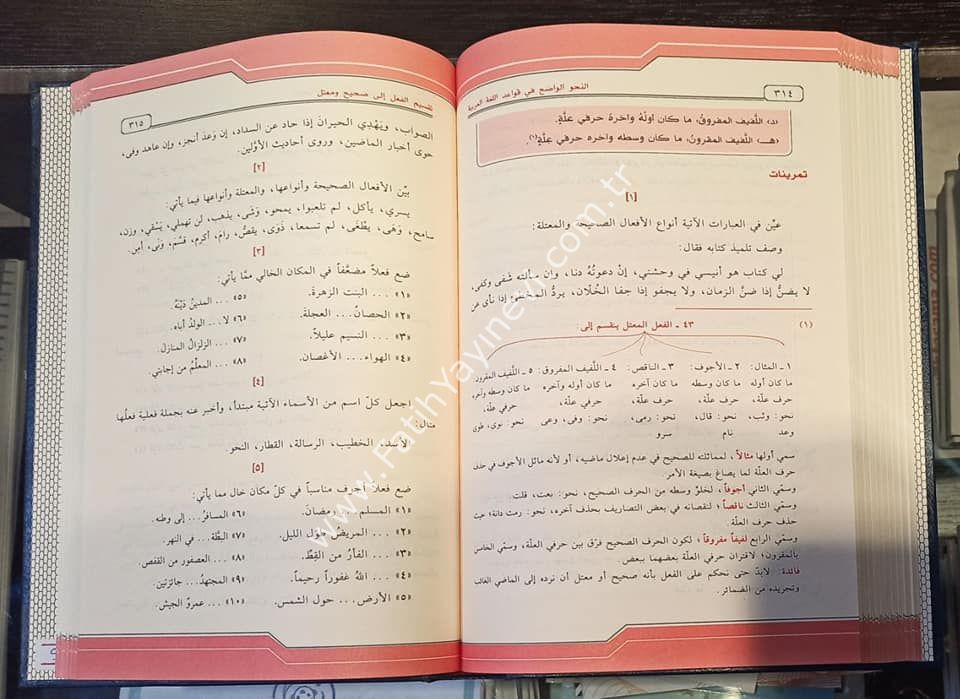 ٣١٤
النحو الواضح في قواعد اللغة العربية
«د» اللَّفيف المفروقُ: ما كان أولُهُ وآخرهُ حرفي علّةٍ.
«هـ» اللَّفيف المقرون: ما كان وسطه وآخره حرفي علّةٍ(١).
تمرينات
[١]
عيِّن في العبارات الآتية أنواع الأفعال الصحيحة والمعتلة:
وصف تلميذ كتابه فقال:
لي كتاب هو أنيسي في وحشتي، إنْ دعوتُهُ دنا، وإن سألته شفى وكفى،
لا يضنُّ إذا ضنَّ الزمان، ولا يجفو إذا جفا الخُلَّان، يردُّ المخطئ إذا نأى عن
(١)
٤٣ - الفعل المعتل ينقسم إلى:
١ - المثال: ٢ - الأجوف: ٣ - الناقص: ٤ - اللَّفيف المفروق: ٥ - اللَّفيف المقرون:
ما كان أوله ما كان وسطه ما كان آخره ما كان أوله وآخره ما كان وسطه وآخره
حرف علّة، حرف علّة، حرف علّة، حرفي علّة، حرفي علّة،
نحو: وثب، نحو: قال، نحو: رمى، نحو: وفى، وعى نحو: نوى، طوى
وعد نام سرو
سمي أولها مثالاً، لمماثلته للصحيح في عدم إعلال ماضيه، أو لأنه ماثل الأجوف في حذف
حرف العلّة لما يصاغ بصيغة الأمر.
وسمّي الثاني أجوفاً، لخلوّ وسطه من الحرف الصحيح، نحو: بعت، قلت.
وسمّي الثالث ناقصاً؛ لنقصانه في بعض التصاريف بحذف آخره، نحو: رمت دانة؛ حيث
حذف حرف العلّة.
وسمّي الرابع لفيفاً مفروقاً؛ لكون الحرف الصحيح فرّق بين حرفي العلّة، وسمّي الخامس
بالمقرون؛ لاقتران حرفي العلّة بعضهما ببعض.
فائدة: لابدّ حتى نحكم على الفعل بأنه صحيح أو معتل أن نرده إلى الماضي الغائب
وتجريده من الضمائر.
تقسيم الفعل إلى صحيح ومعتل
٣١٥
الصواب، ويَهْدِي الحيرانَ إذا حاد عن السداد، إن وَعدَ أنجز، وإن عاهد وفى،
حوى أخبار الماضين، وروى أحاديث الأوَّلين.
[٢]
بيِّن الأفعال الصحيحة وأنواعها، والمعتلة وأنواعها فيما يأتي:
يسري، يأكل، لم تلعبوا، يمحو، وَشَى، يذهب، لن تهملي، يَسْقِي، وزن،
سامح، وَهَى، يطْغَى، لم تسمعا، ذَوَى، يقصُّ، رامَ، أكرم، قسَّم، وَنَى، أمِن.
[٣]
ضع فعلاً مضعَّفاً في المكان الخالي ممَّا يأتي:
«١» ... البنت الزهرةَ.
«٥» ... المدينُ دَيْنَهُ
«٢» الحصانُ... العجلة.
«٦» لا... الولدُ أباه.
«٣» ... النسيم عليلاً.
«٧» ... الزلزالُ المنازلَ.
«٤» الهواء... الأغصان.
«٨» ... المعلّم من إجابتي.
[٤]
اجعل كلّ اسم من الأسماء الآتية مبتدأ، وأخبر عنه بجملة فعلية فعلُها
مثال:
الأسد، الخطيب، الرسالة، القطار، النحو.
[٥]
ضع فعلاً أجوف مناسباً في كلّ مكان خال مما يأتي:
«١» المسلم... رمضانَ.
«٦» المسافرُ... إلى وطنه.
«٢» ... المريضُ طول الليل.
«٧» البطَّة... في النهر.
«٣» ... الفأرُ من القِطِّ.
«٨» ... العصفور من القفص.
«٤» ... اللهُ غفوراً رحيماً.
«٩» المجتهدُ... جائزتين.
«٥» الأرض... حول الشمس.
«١٠» ... عمرٌو الجيش.
www.FatihYayinevi.com.tr